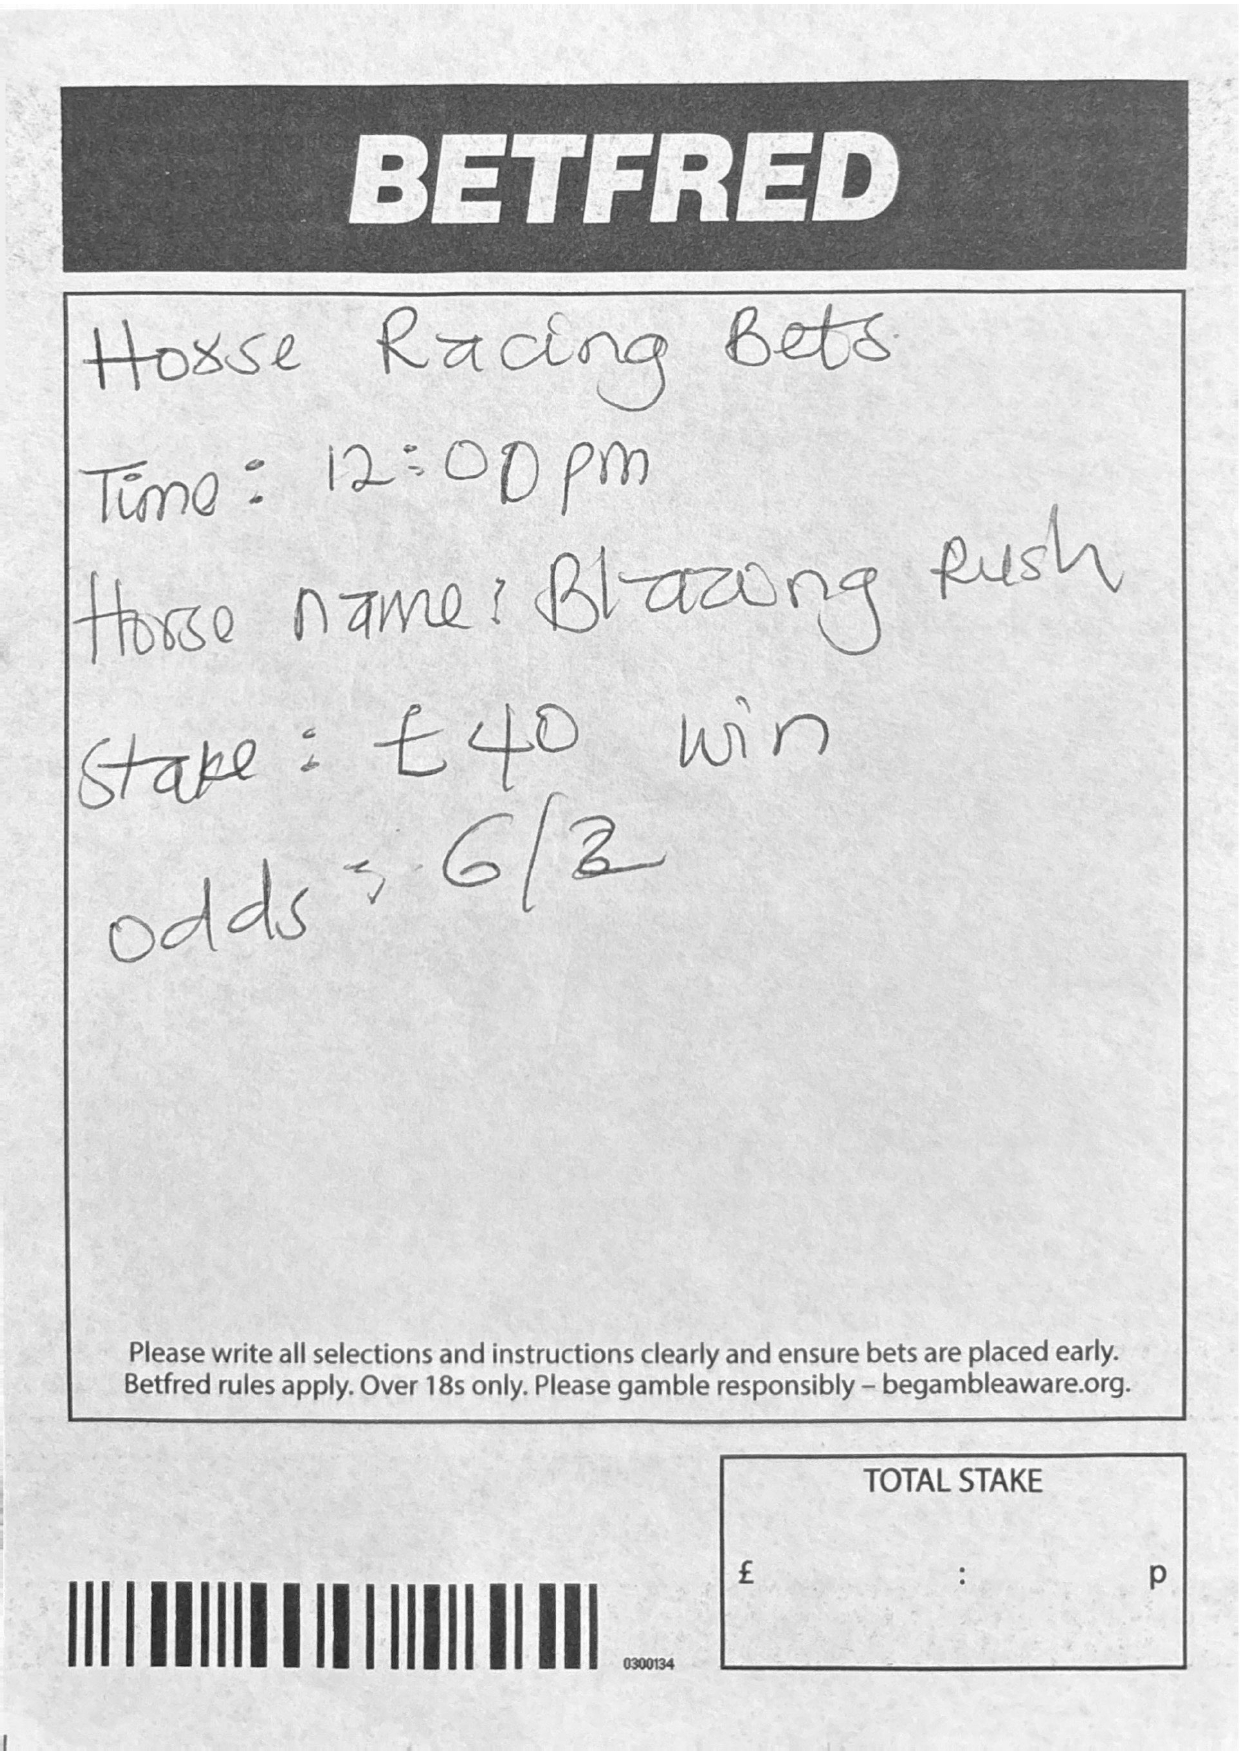 BETFRED
Horse Racing Bets
Time: 12:00pm
Horse name: Blazing Rush
Stake: £40 win
odds: 6/2
Please write all selections and instructions clearly and ensure bets are placed early.
Betfred rules apply. Over 18s only. Please gamble responsibly – begambleaware.org.
TOTAL STAKE
£ : p
0300134